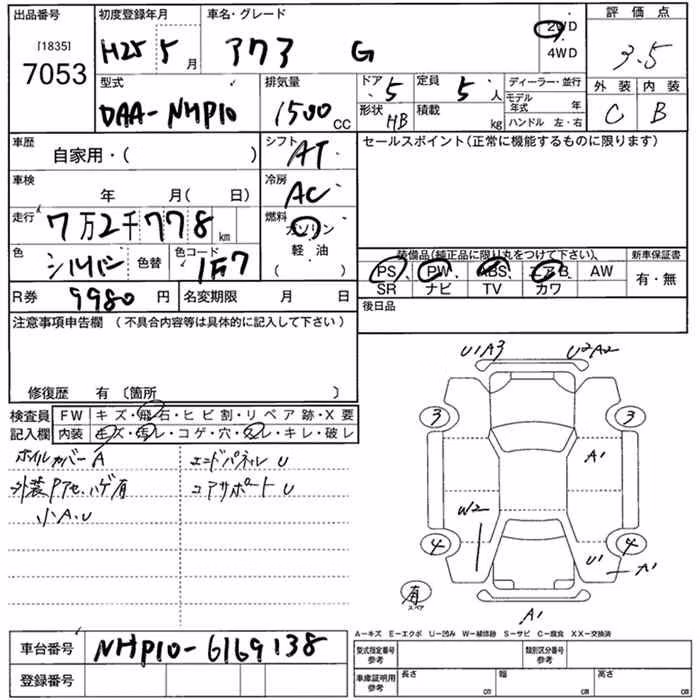 出品番号 初度登録年月 車名・グレード 評価点
[1835]
7053
H25 5月 アクア G 2WD 4WD 3.5
型式 排気量 ドア 5 定員 5人 ディーラー・並行 外装 内装
DAA-NHP10 1500cc 形状 HB 積載 kg モデル年式 年 C B
ハンドル 左・右
車歴 シフト AT セールスポイント(正常に機能するものに限ります)
自家用・( )
車検 年 月( 日) 冷房 AC
走行 7万2千778km 燃料 ガソリン
軽油
( )
色 シルバー 色替 色コード 1F7
装備品(純正品に限り丸をつけて下さい) 新車保証書
PS PW ABS エアB AW 有・無
SR ナビ TV カワ
R券 9980円 名変期限 月 日 後日品
注意事項申告欄 (不具合内容等は具体的に記入して下さい)
修復歴 有〔箇所 〕
検査員記入欄 FW キズ・飛石・ヒビ割・リペア跡・X要
内装 キズ・汚レ・コゲ・穴・スレ・キレ・破レ
ホイルカバーA エンドパネルU
外装Pアセ、ハゲ有 コアサポートU
小A、U
U1A3 U2A2
3 3
A1
W2
4 4
U1 A1
有 スペア
A1
A-キズ E-エクボ U-凹み W-補修跡 S-サビ C-腐食 XX-交換済
車台番号 NHP10-6169138
登録番号
型式指定番号 参考 類別区分番号 参考
車庫証明用 参考 長さ cm 幅 cm 高さ cm